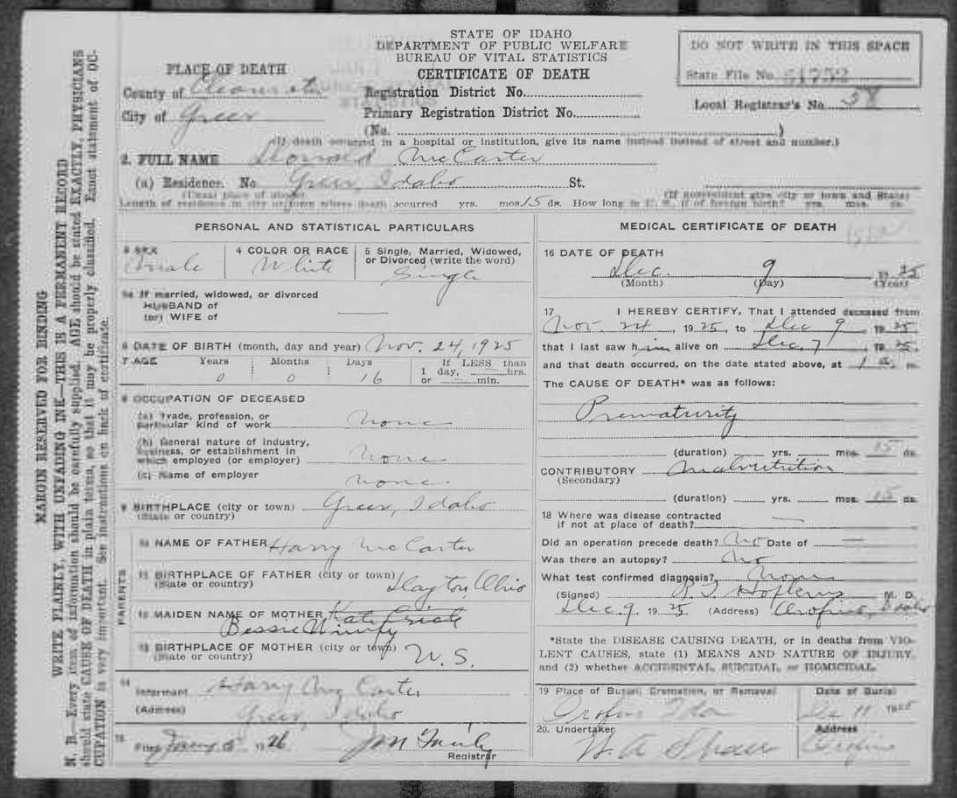 STATE OF IDAHO
DEPARTMENT OF PUBLIC WELFARE
BUREAU OF VITAL STATISTICS
CERTIFICATE OF DEATH
DO NOT WRITE IN THIS SPACE
State File No. 51752
Local Registrar's No. 58
PLACE OF DEATH
County of Clearwater
City of Greer
Registration District No.
Primary Registration District No.
(No. )
(If death occurred in a hospital or institution, give its name instead of street and number.)
2. FULL NAME Donald McCarter
(a) Residence. No Greer, Idaho St.
(Usual place of abode) (If nonresident give city or town and State)
Length of residence in city or town where death occurred yrs. mos. 15 ds. How long in U. S. if of foreign birth? yrs. mos. ds.
PERSONAL AND STATISTICAL PARTICULARS
3 SEX male
4 COLOR OR RACE White
5 Single, Married, Widowed, or Divorced (write the word) Single
5a If married, widowed, or divorced
HUSBAND of
(or) WIFE of
6 DATE OF BIRTH (month, day and year) Nov. 24, 1925
7 AGE Years Months Days If LESS than
0 0 16 1 day, hrs.
or min.
8 OCCUPATION OF DECEASED
(a) Trade, profession, or
particular kind of work none
(b) General nature of industry,
business, or establishment in
which employed (or employer) none
(c) Name of employer none.
9 BIRTHPLACE (city or town) Greer, Idaho
(State or country)
PARENTS
10 NAME OF FATHER Harry McCarter
11 BIRTHPLACE OF FATHER (city or town) Dayton, Ohio
(State or country)
12 MAIDEN NAME OF MOTHER
Bessie
13 BIRTHPLACE OF MOTHER (city or town) U.S.
(State or country)
14
Informant Harry McCarter
(Address) Greer, Idaho
15
Filed Jany 5 1926
Registrar
MEDICAL CERTIFICATE OF DEATH
16 DATE OF DEATH
Dec. 9 1925
(Month) (Day) (Year)
17 I HEREBY CERTIFY, That I attended deceased from
Nov. 24, 1925, to Dec 9 1925
that I last saw him alive on Dec. 7 1925.
and that death occurred, on the date stated above, at 1 a. m.
The CAUSE OF DEATH* was as follows:
Prematurity
(duration) yrs. mos. 15 ds.
CONTRIBUTORY Malnutrition
(Secondary)
(duration) yrs. mos. 15 ds.
18 Where was disease contracted
if not at place of death?
Did an operation precede death? No Date of
Was there an autopsy? No
What test confirmed diagnosis? None
(Signed) Hopkins M. D.
Dec. 9. 1925 (Address) Orofino, Idaho
*State the DISEASE CAUSING DEATH, or in deaths from VIO-
LENT CAUSES, state (1) MEANS AND NATURE OF INJURY,
and (2) whether ACCIDENTAL, SUICIDAL, or HOMICIDAL.
19 Place of Burial, Cremation, or Removal Date of Burial
Orofino Ida Dec 11 1925
20. Undertaker Address
Orofino
MARGIN RESERVED FOR BINDING
WRITE PLAINLY, WITH UNFADING INK—THIS IS A PERMANENT RECORD
N. B.—Every item of information should be carefully supplied. AGE should be stated EXACTLY, PHYSICIANS
should state CAUSE OF DEATH in plain terms, so that it may be properly classified. Exact statement of OC-
CUPATION is very important. See instructions on back of certificate.